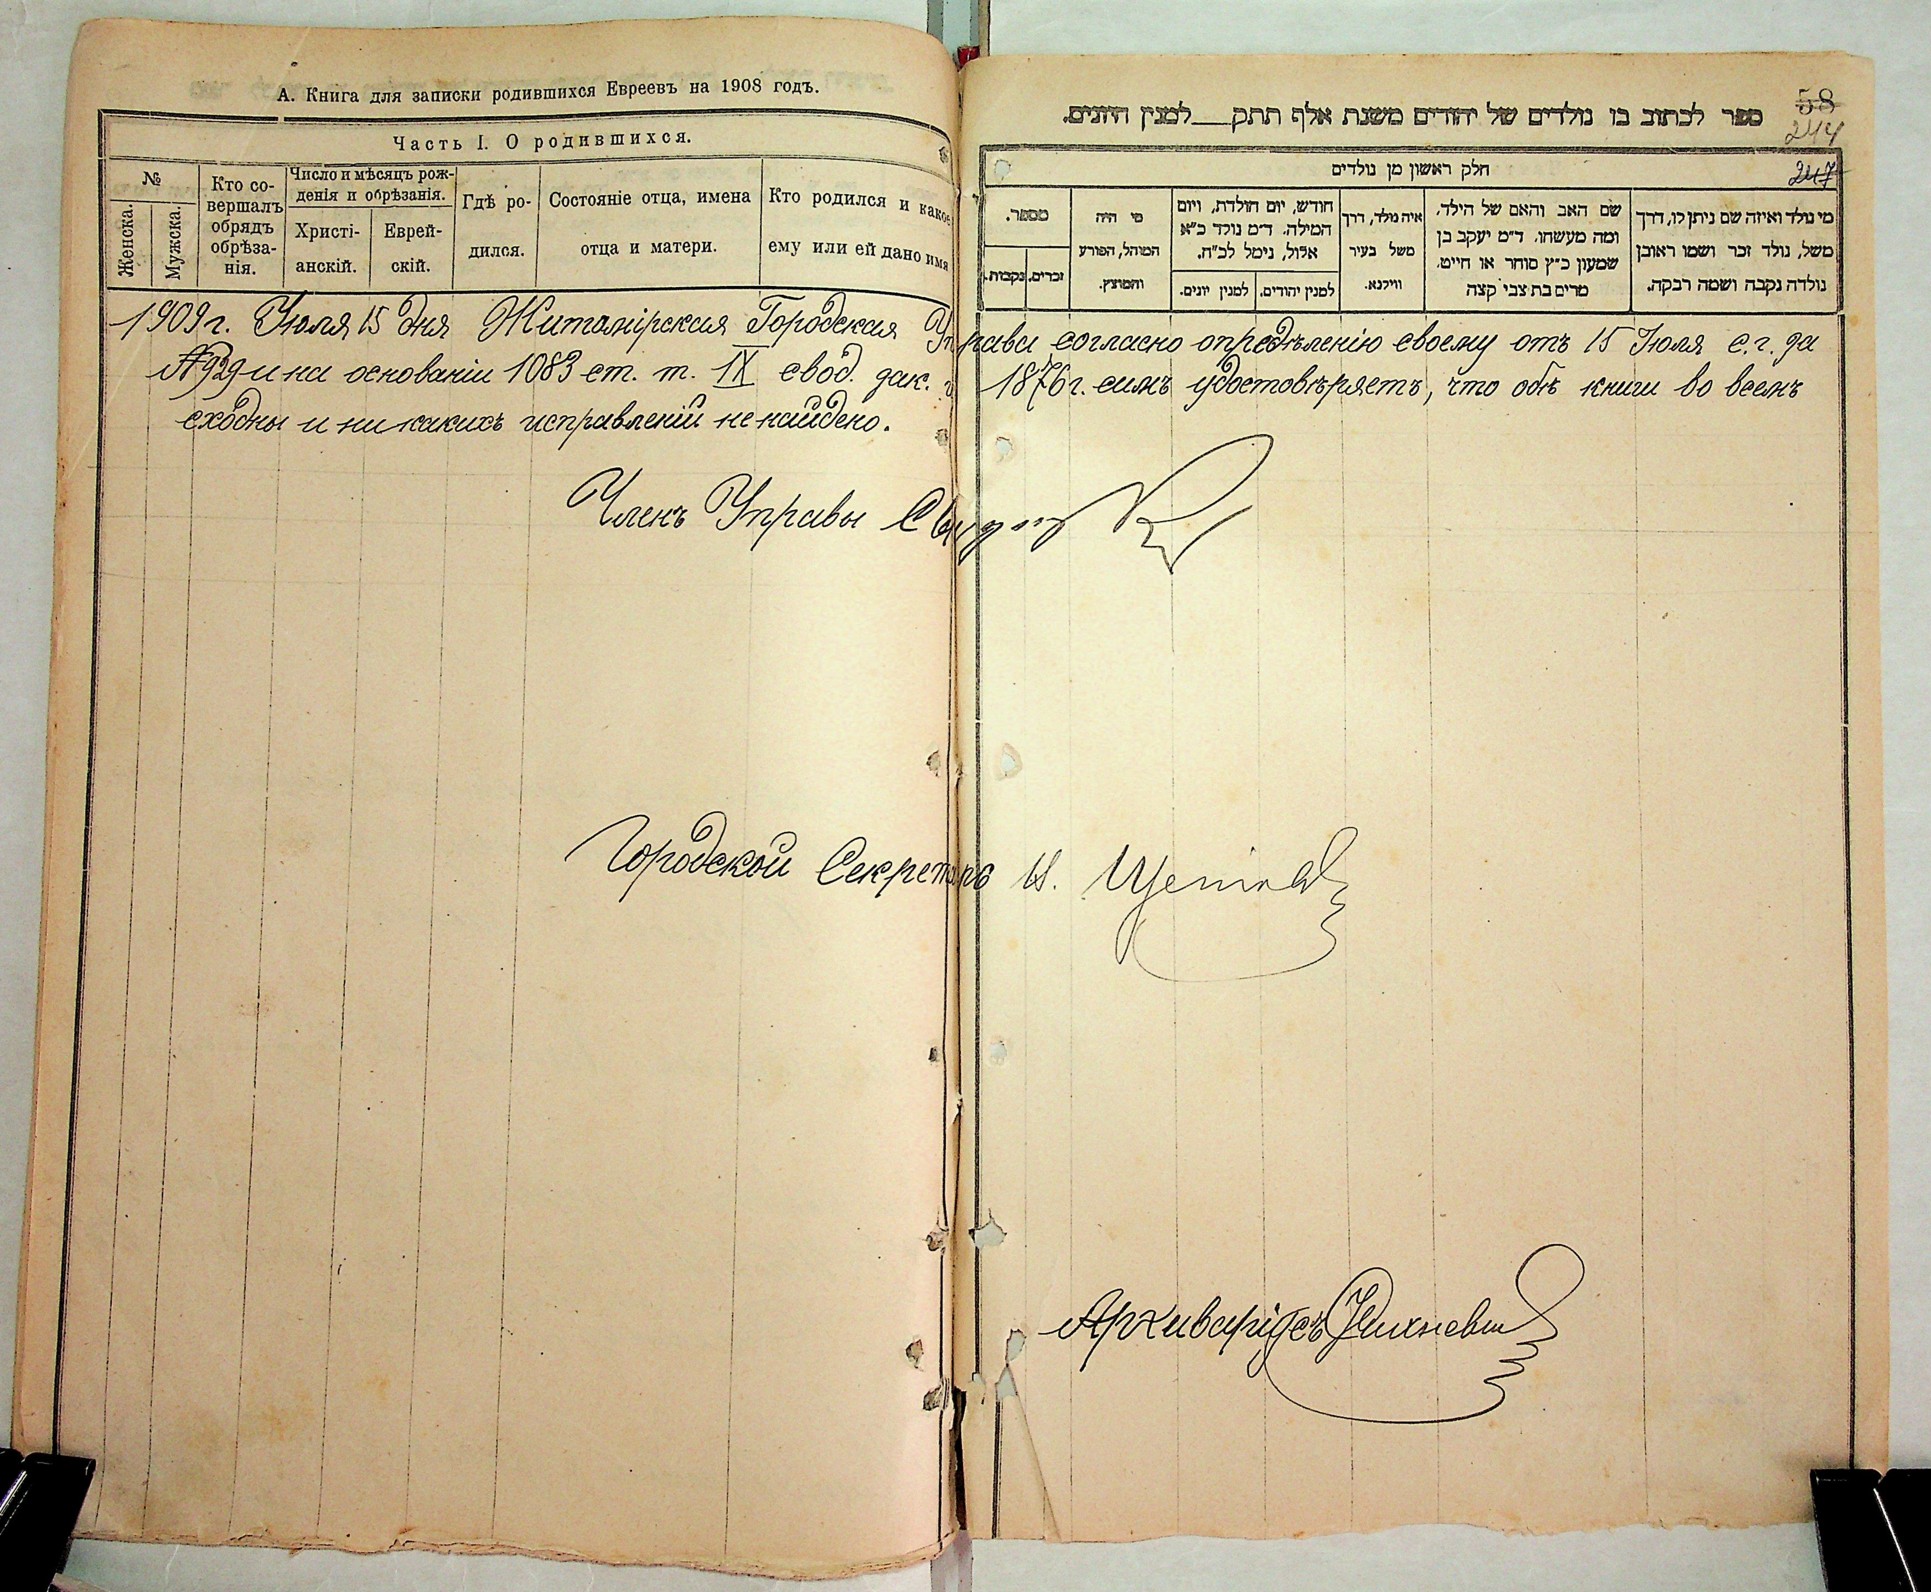 А. Книга для записки родившихся Евреевъ на 1908 годъ.
Часть I. О родившихся.
№
Женска.
Мужска.
Кто со-
вершалъ
обрядъ
обрѣза-
нія.
Число и мѣсяцъ рож-
денія и обрѣзанія.
Христі-
анскій.
Еврей-
скій.
Гдѣ ро-
дился.
Состояніе отца, имена
отца и матери.
Кто родился и какое
ему или ей дано имя
58
244
247
ספר לכתוב בו נולדים של יהודים משנת אלף תתק___למנין היונים.
חלק ראשון מן נולדים
מספר.
זכרים.
נקבות.
מי היה
המוהל, הפורע
והמוצץ.
חודש, יום הולדת, ויום
המילה. ד״מ נולד כ״א
אלול, נימל לכ״ח.
למנין יהודים.
למנין יונים.
איה נולד, דרך
משל בעיר
ווילנא.
שם האב והאם של הילד,
ומה מעשהו. ד״מ יעקב בן
שמעון כ״ץ סוחר או חייט,
מרים בת צבי קצה
מי נולד ואיזה שם ניתן לו, דרך
משל, נולד זכר ושמו ראובן
נולדה נקבה ושמה רבקה.
1909 г. Июля 15 дня Житомірская Городская Управа согласно опредѣленію своему отъ 15 Іюля с. г. за
№ 929 и на основаніи 1083 ст. т. IX свод. зак. 1876 г. симъ удостовѣряетъ, что обѣ книги во всемъ
сходны и никакихъ исправленій не найдено.
Членъ Управы
Городской Секретарь И.
Архиваріусъ